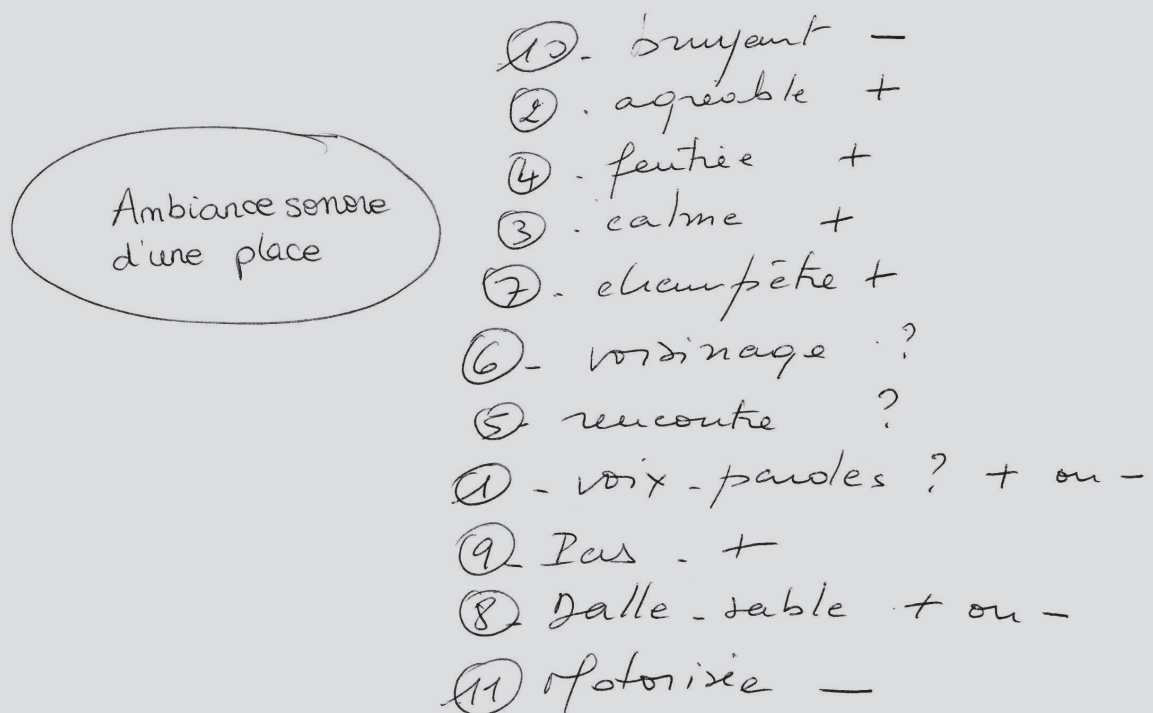 Ambiance sonore
d'une place
10 - bruyant -
2 - agréable +
4 - feutrée +
3 - calme +
7 - champêtre +
6 - voisinage ?
5 - rencontre ?
1 - voix - paroles ? + ou -
9 - Pas - +
8 - Dalle - sable + ou -
11 Motorisée -